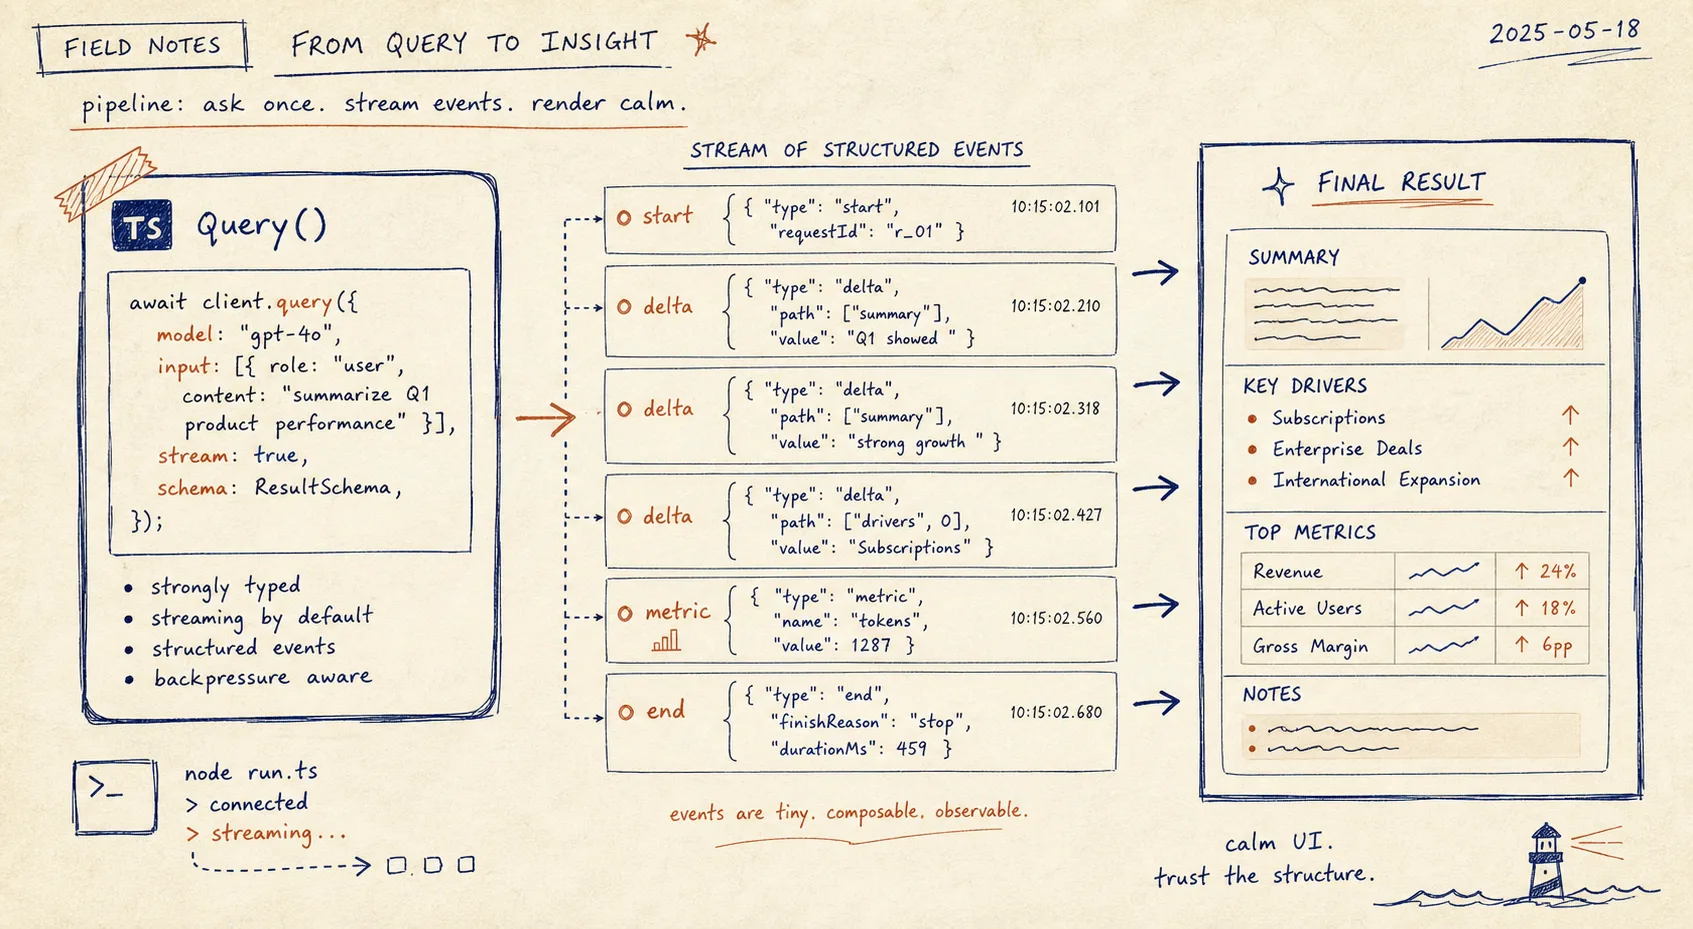 FIELD NOTES
FROM QUERY TO INSIGHT
2025-05-18
pipeline: ask once. stream events. render calm.
TS
Query()
await client.query({
model: "gpt-4o",
input: [{ role: "user",
content: "summarize Q1
product performance" }],
stream: true,
schema: ResultSchema,
});
• strongly typed
• streaming by default
• structured events
• backpressure aware
>_
node run.ts
> connected
> streaming...
STREAM OF STRUCTURED EVENTS
start
{ "type": "start",
"requestId": "r_01" }
10:15:02.101
delta
{ "type": "delta",
"path": ["summary"],
"value": "Q1 showed " }
10:15:02.210
delta
{ "type": "delta",
"path": ["summary"],
"value": "strong growth " }
10:15:02.318
delta
{ "type": "delta",
"path": ["drivers", 0],
"value": "Subscriptions" }
10:15:02.427
metric
{ "type": "metric",
"name": "tokens",
"value": 1287 }
10:15:02.560
end
{ "type": "end",
"finishReason": "stop",
"durationMs": 459 }
10:15:02.680
events are tiny. composable. observable.
FINAL RESULT
SUMMARY
KEY DRIVERS
• Subscriptions ↑
• Enterprise Deals ↑
• International Expansion ↑
TOP METRICS
Revenue ↑ 24%
Active Users ↑ 18%
Gross Margin ↑ 6pp
NOTES
calm UI.
trust the structure.